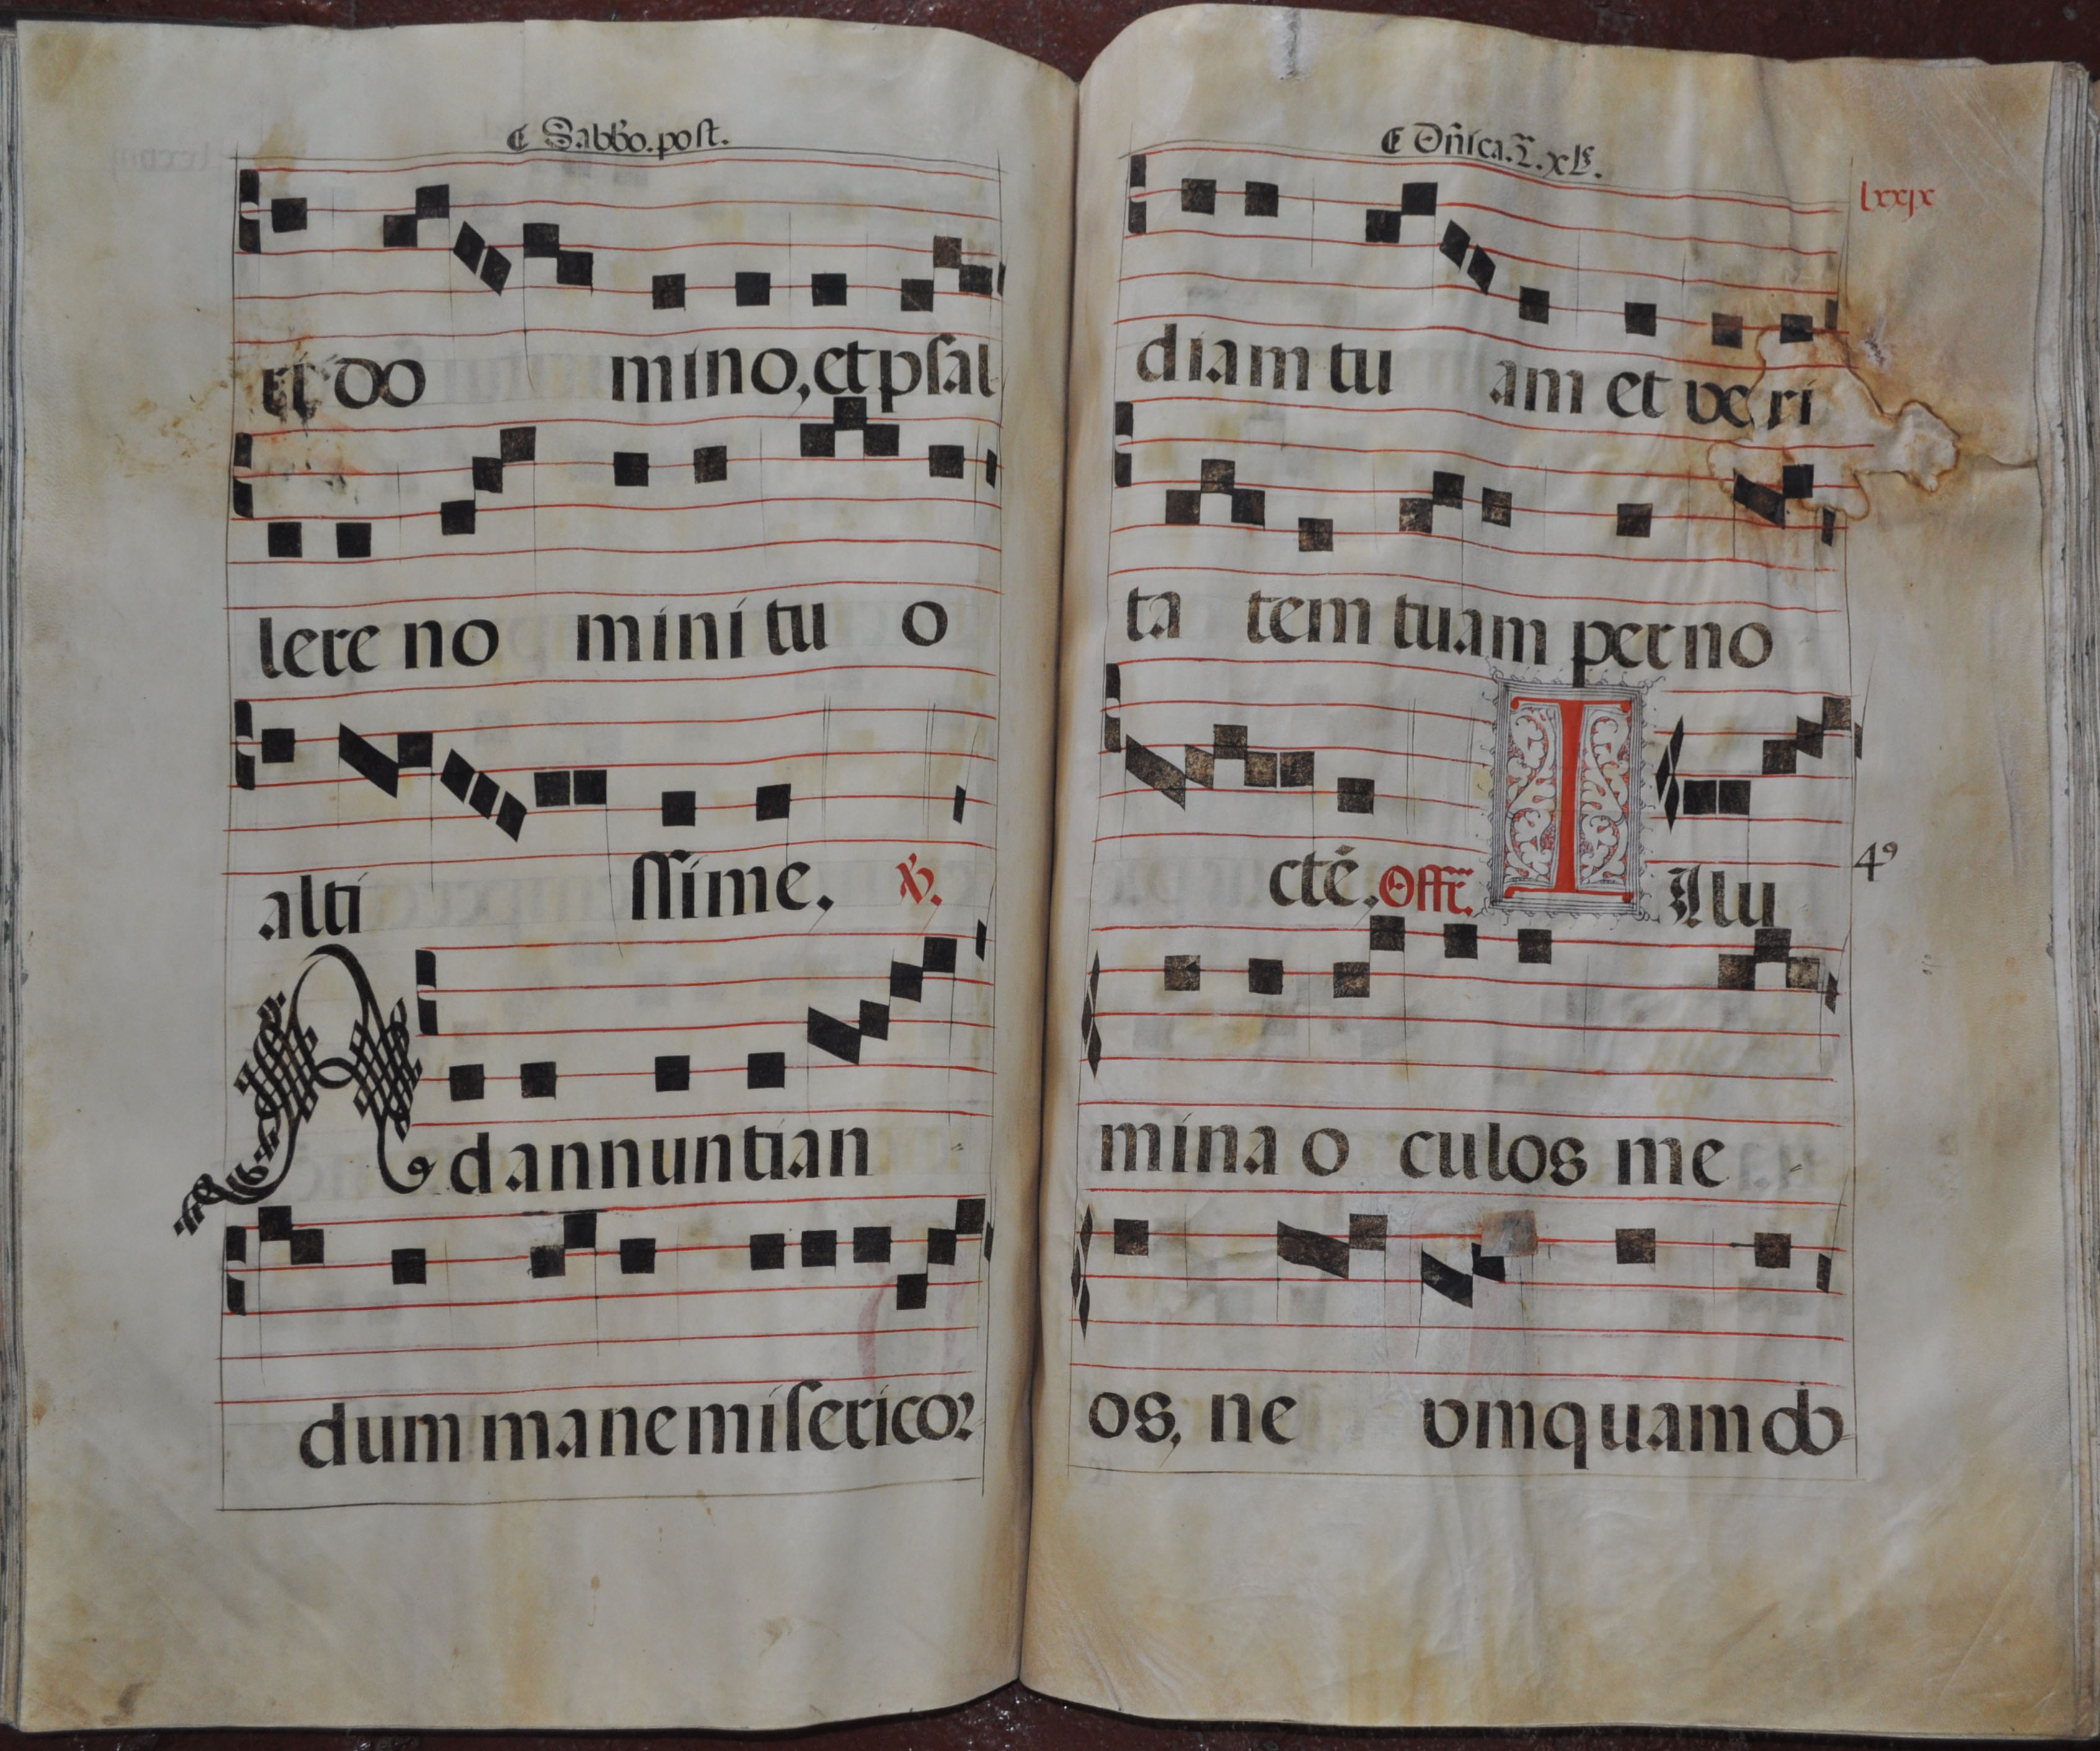 ¶ Sabbo. post.
ri do mino, et psal
lere no mini tu o
alti ssime. ℣.
Ad annuntian
dum mane misericor
¶ Dñica. 2. xlͤ.
lxxjx
diam tu am et veri
ta tem tuam per no
ctē. Offr̄. I Ilu
4⁹
mina o culos me
os, ne vmquam ob